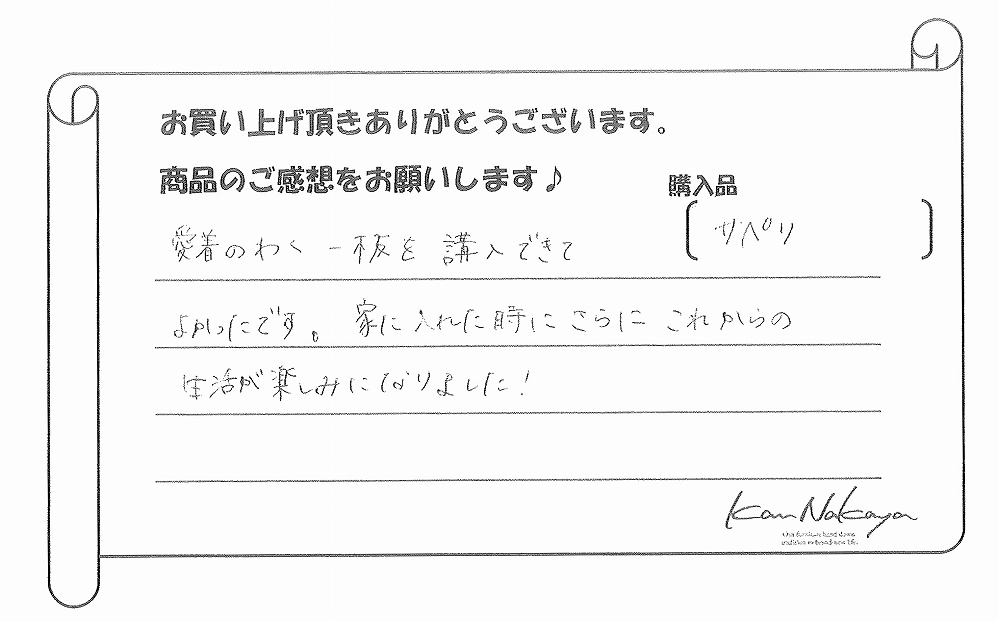 お買い上げ頂きありがとうございます。
商品のご感想をお願いします♪
購入品
サペリ
愛着のわく 一板を 講入できて
よかったです。 家に入れた時に さらに これからの
生活が楽しみになりました!
Kan Nakaya